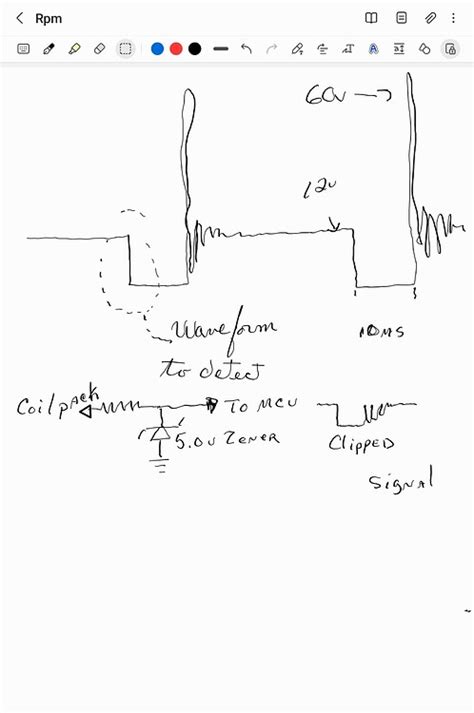 Rpm
60v
12v
Waveform
to detect
10ms
Coilpack
To MCU
5.0v Zener
Clipped
Signal